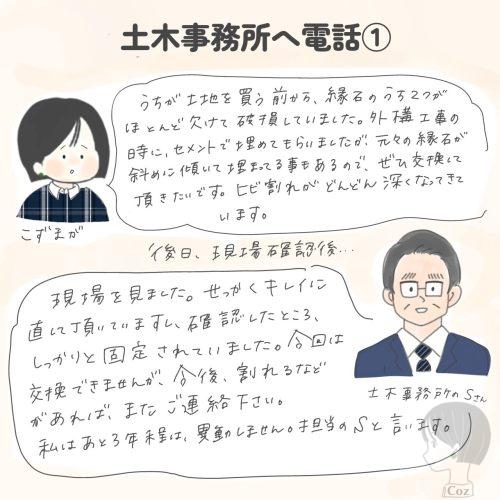 土木事務所へ電話①
うちが土地を買う前から、縁石のうち2つが
ほとんど欠けて破損していました。外構工事の
時に、セメントで埋めてもらいましたが、元々の縁石が
斜めに傾いて埋まってる事もあるので、ぜひ交換して
頂きたいです。ヒビ割れがどんどん深くなってきて
います。
こずまが
後日、現場確認後…
現場を見ました。せっかくキレイに
直して頂いていますし、確認したところ、
しっかりと固定されていました。今回は
交換できませんが、今後、割れるなど
があれば、またご連絡下さい。
私はあと3年程は、異動しません。担当のSと言います。
土木事務所のSさん
Coz